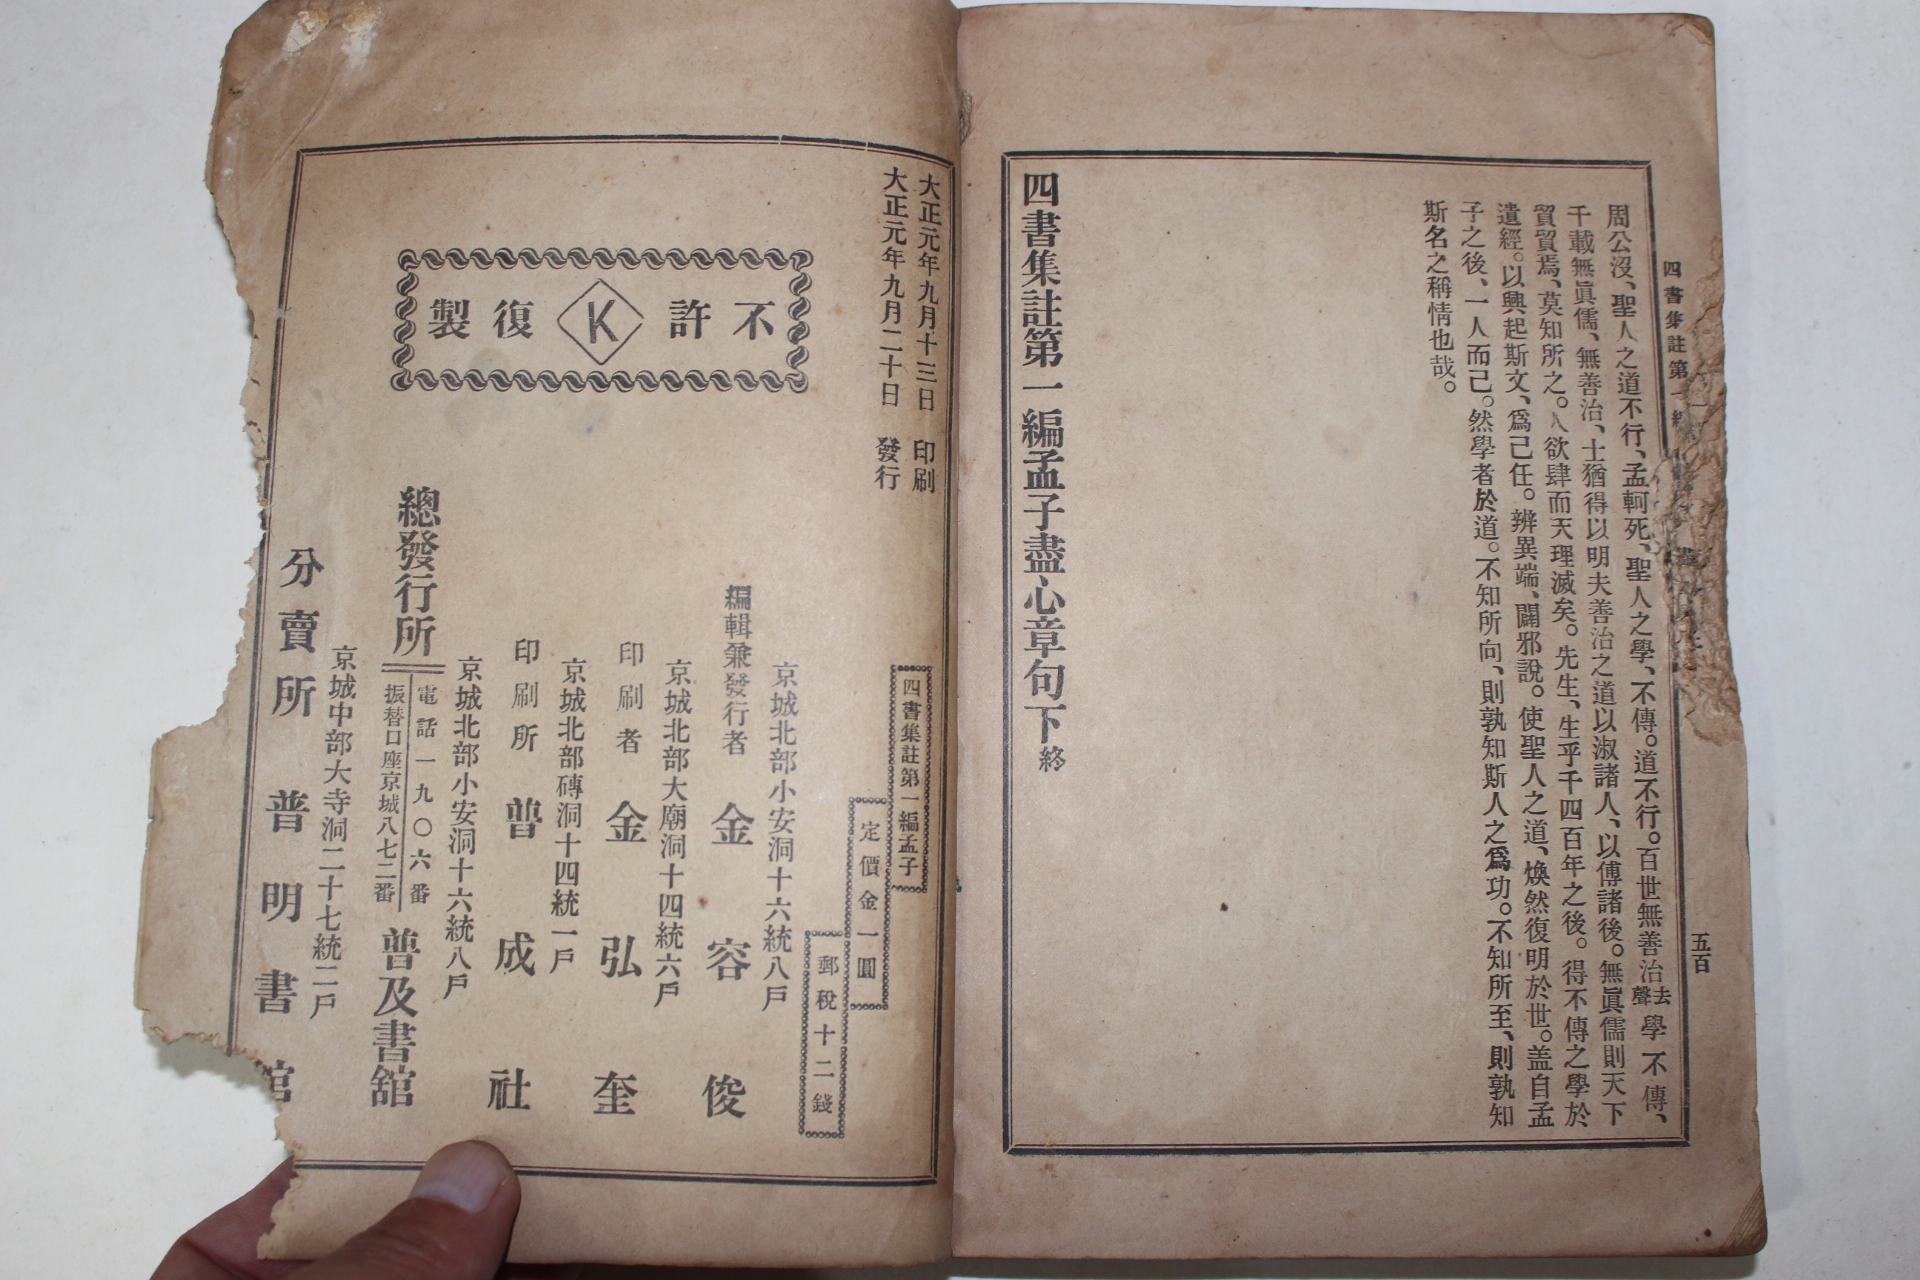 四書集註第一編
五百
周公沒、聖人之道不行、孟軻死、聖人之學、不傳。道不行。百世無善治去聲學不傳、
千載無眞儒、無善治、士猶得以明夫善治之道以淑諸人、以傳諸後。無眞儒則天下
貿貿焉、莫知所之。人欲肆而天理滅矣。先生、生乎千四百年之後。得不傳之學於
遺經。以興起斯文、爲己任。辨異端、闢邪說。使聖人之道、煥然復明於世。盖自孟
子之後、一人而己。然學者於道。不知所向、則孰知斯人之爲功。不知所至、則孰知
斯名之稱情也哉。
四書集註第一編孟子盡心章句下終
大正元年九月十三日 印刷
大正元年九月二十日 發行
不許K復製
四書集註第一編孟子
定價金一圓
郵稅十二錢
京城北部小安洞十六統八戶
編輯兼發行者 金容俊
京城北部大廟洞十四統六戶
印刷者 金弘奎
京城北部磚洞十四統一戶
印刷所 普成社
京城北部小安洞十六統八戶
總發行所 普及書舘
電話一九〇六番
振替口座京城八七二番
京城中部大寺洞二十七統二戶
分賣所 普明書舘